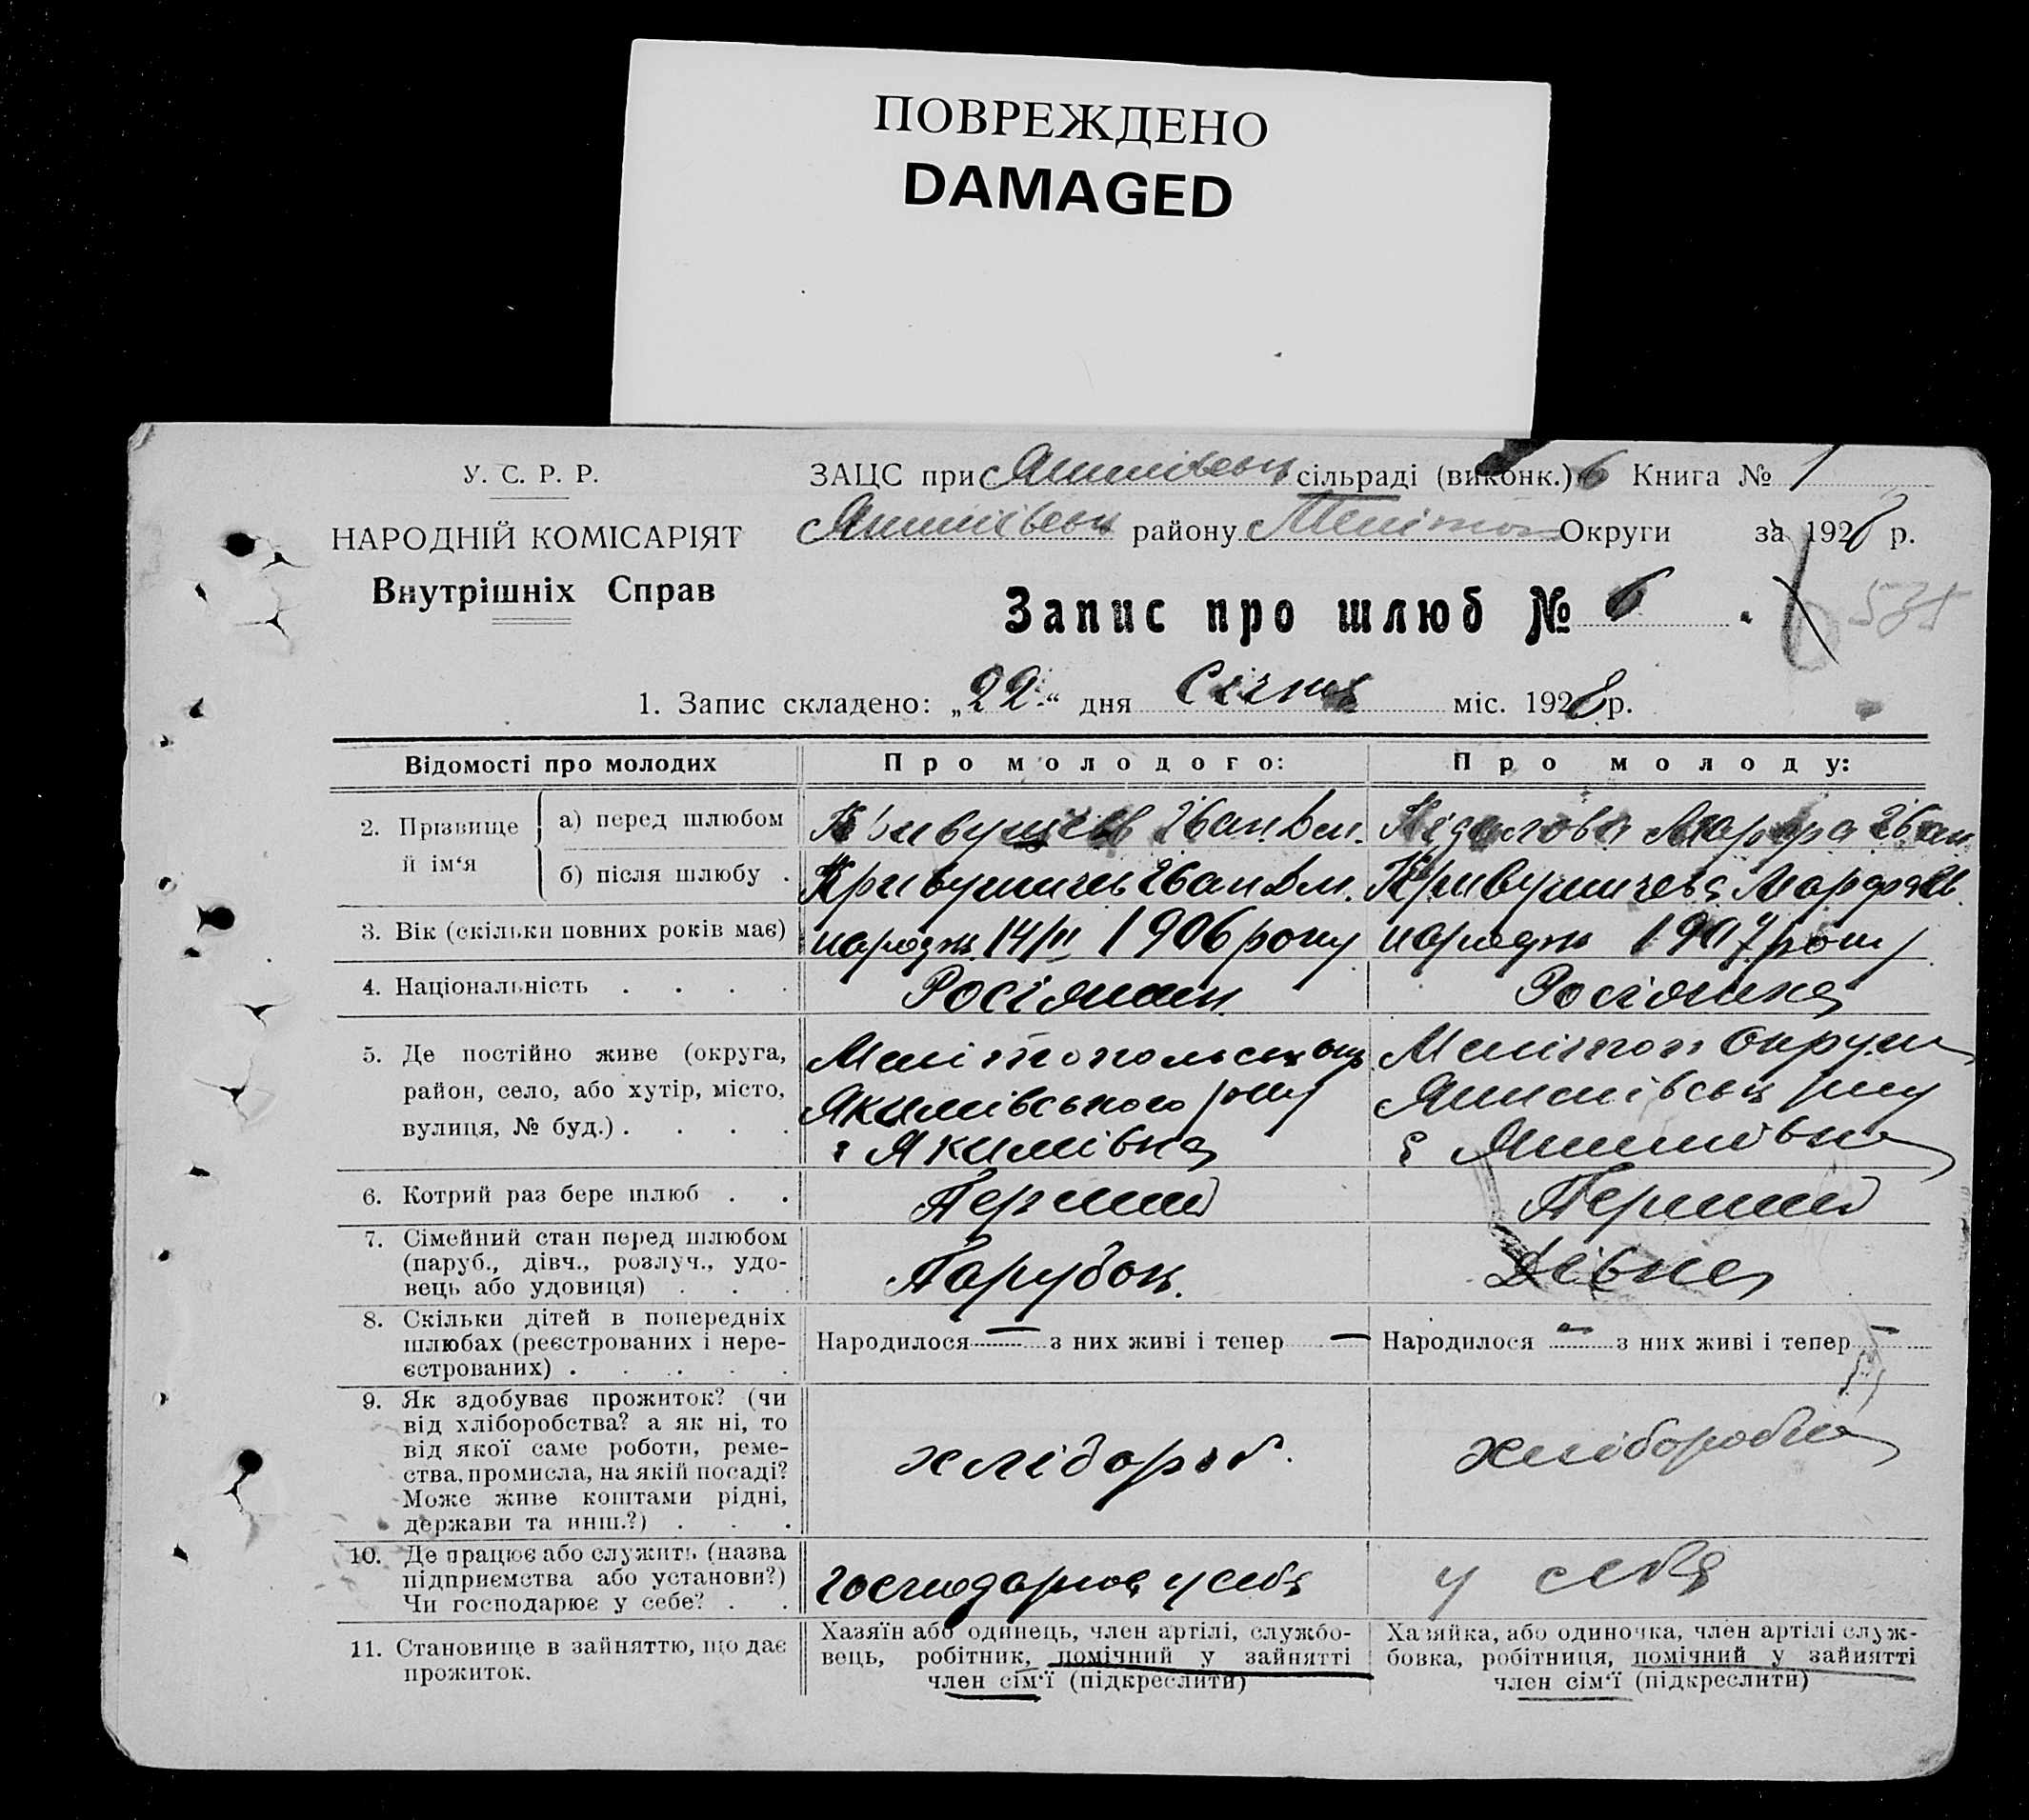 ПОВРЕЖДЕНО
DAMAGED
У. С. Р. Р.
НАРОДНІЙ КОМІСАРІЯТ
Внутрішніх Справ
ЗАЦС при Якимівськ сільраді (виконк.) 6 Книга № 1
Якимівськ району Мелітоп Округи за 1928 р.
Запис про шлюб № 6
535
1. Запис складено: „22“ дня Січня міс. 1928 р.
Відомості про молодих Про молодого: Про молоду:
2. Прізвище й ім‘я
а) перед шлюбом Іван Дм. Марфа Іван
б) після шлюбу . Кривушичев Іван Дм. Кривушичева Марфа Ів.
3. Вік (скільки повних років має) народж. 14/II 1906 року народж 1907 року
4. Національність . . . . Росіянин Росіянка
5. Де постійно живе (округа, район, село, або хутір, місто, вулиця, № буд.) . . . .
Мелітопольськ окр
Якимівського рону
с Якимівка
Мелітоп Округи
Якимівськ рну
с Якимівка
6. Котрий раз бере шлюб . . Перший Перший
7. Сімейний стан перед шлюбом
(паруб., дівч., розлуч., удо-
вець або удовиця) . . . Парубок. Дівка
8. Скільки дітей в попередніх
шлюбах (реєстрованих і нере-
єстрованих) . . . . .
Народилося — з них живі і тепер — Народилося — з них живі і тепер —
9. Як здобуває прожиток? (чи
від хліборобства? а як ні, то
від якої саме роботи, реме-
ства, промисла, на якій посаді?
Може живе коштами рідні,
держави та инш.?) . . .
хлібороб. хліборобка
10. Де працює або служить (назва
підприємства або установи?)
Чи господарює у себе? . .
господарює у себе у себе
11. Становище в зайняттю, що дає
прожиток.
Хазяїн або одинець, член артілі, службо-
вець, робітник, помічний у зайнятті
член сім‘ї (підкреслити)
Хазяйка, або одиночка, член артілі служ-
бовка, робітниця, помічний у зайнятті
член сім‘ї (підкреслити)